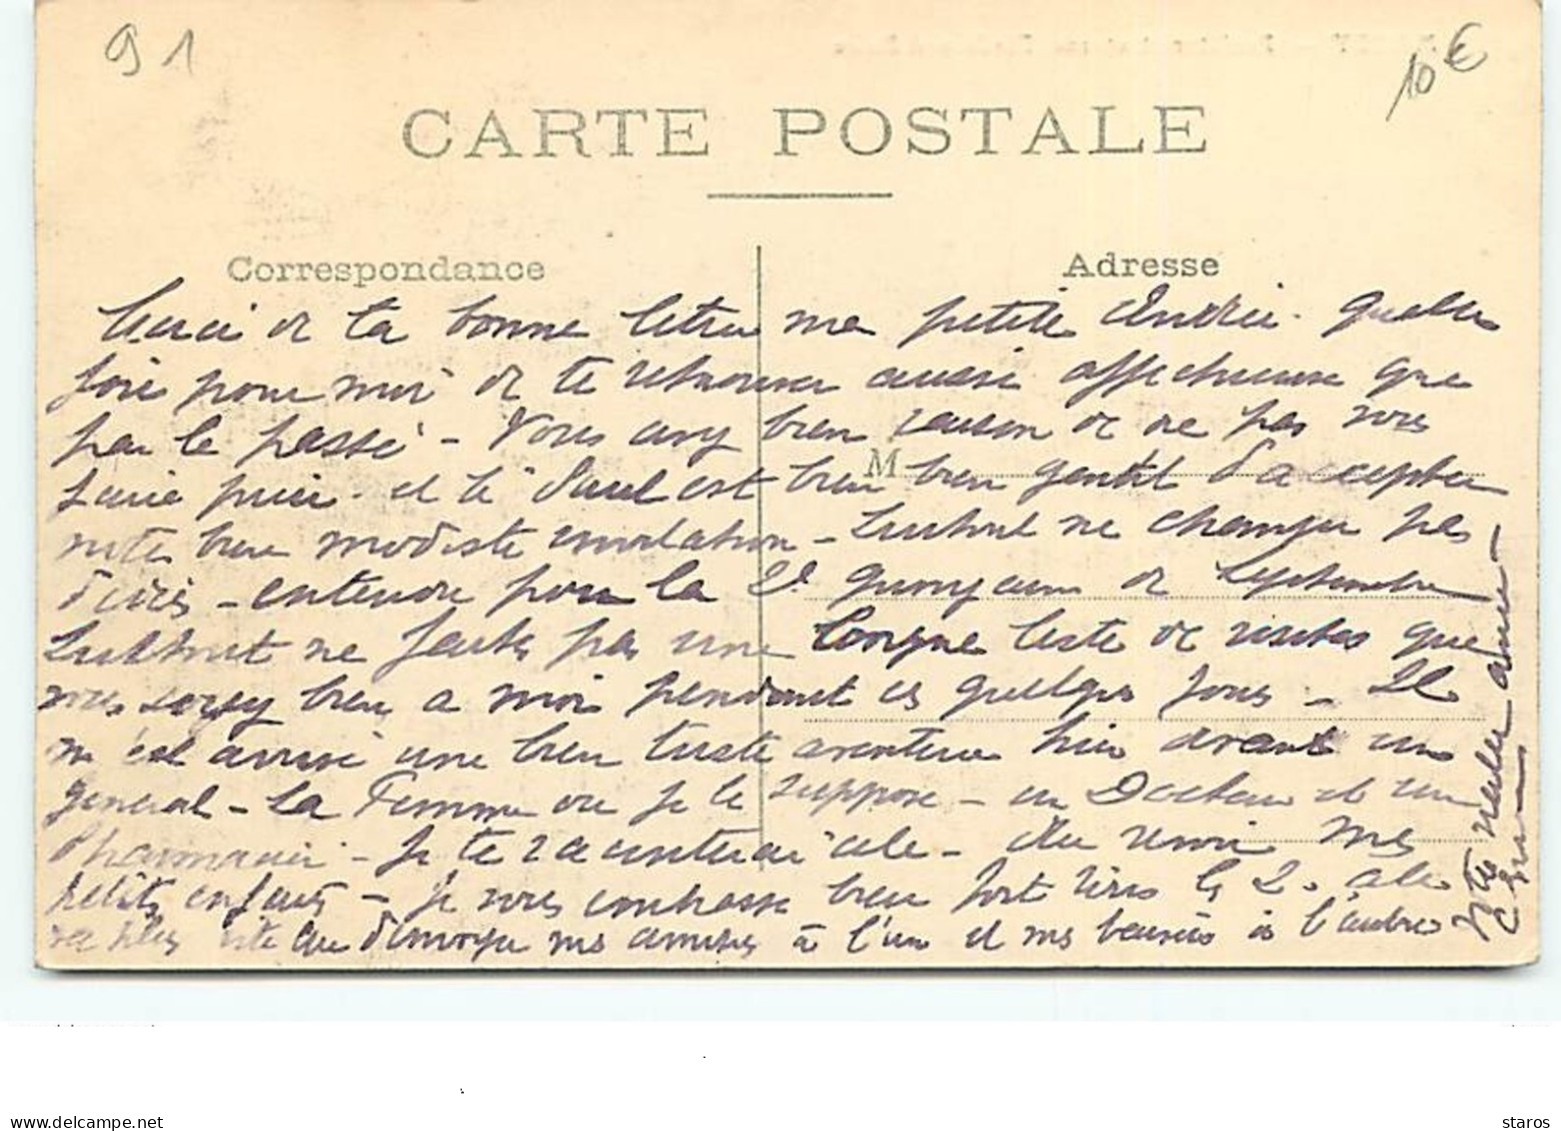 91
10€
CARTE POSTALE
Correspondance
Adresse
M
Merci de ta bonne lettre ma petite Andrée. quelle
joie pour moi de te retrouver aussi affectueuse que
par le passé - Vous avez bien raison de ne pas vous
faire prier. et le Paul est bien bien gentil d'accepter
notre bien modeste invitation - Surtout ne changer pas
d'idées - entendu pour la 2e quinzaine de Septembre
Surtout ne faites pas une longue liste de visites que
vous soyez bien a moi pendant ces quelques jours - Il
m'est arrivé une bien triste aventure hier devant un
général - La Femme ou je le suppose - un Docteur et un
Pharmacien - Je te raconterai cela - Au revoir mes
petits enfants - Je vous embrasse bien fort tous les 2.
vite que d'envoyer mes amitiés à l'un et mes baisers à l'autre
Notre vieille amie -
delcampe.net
staros